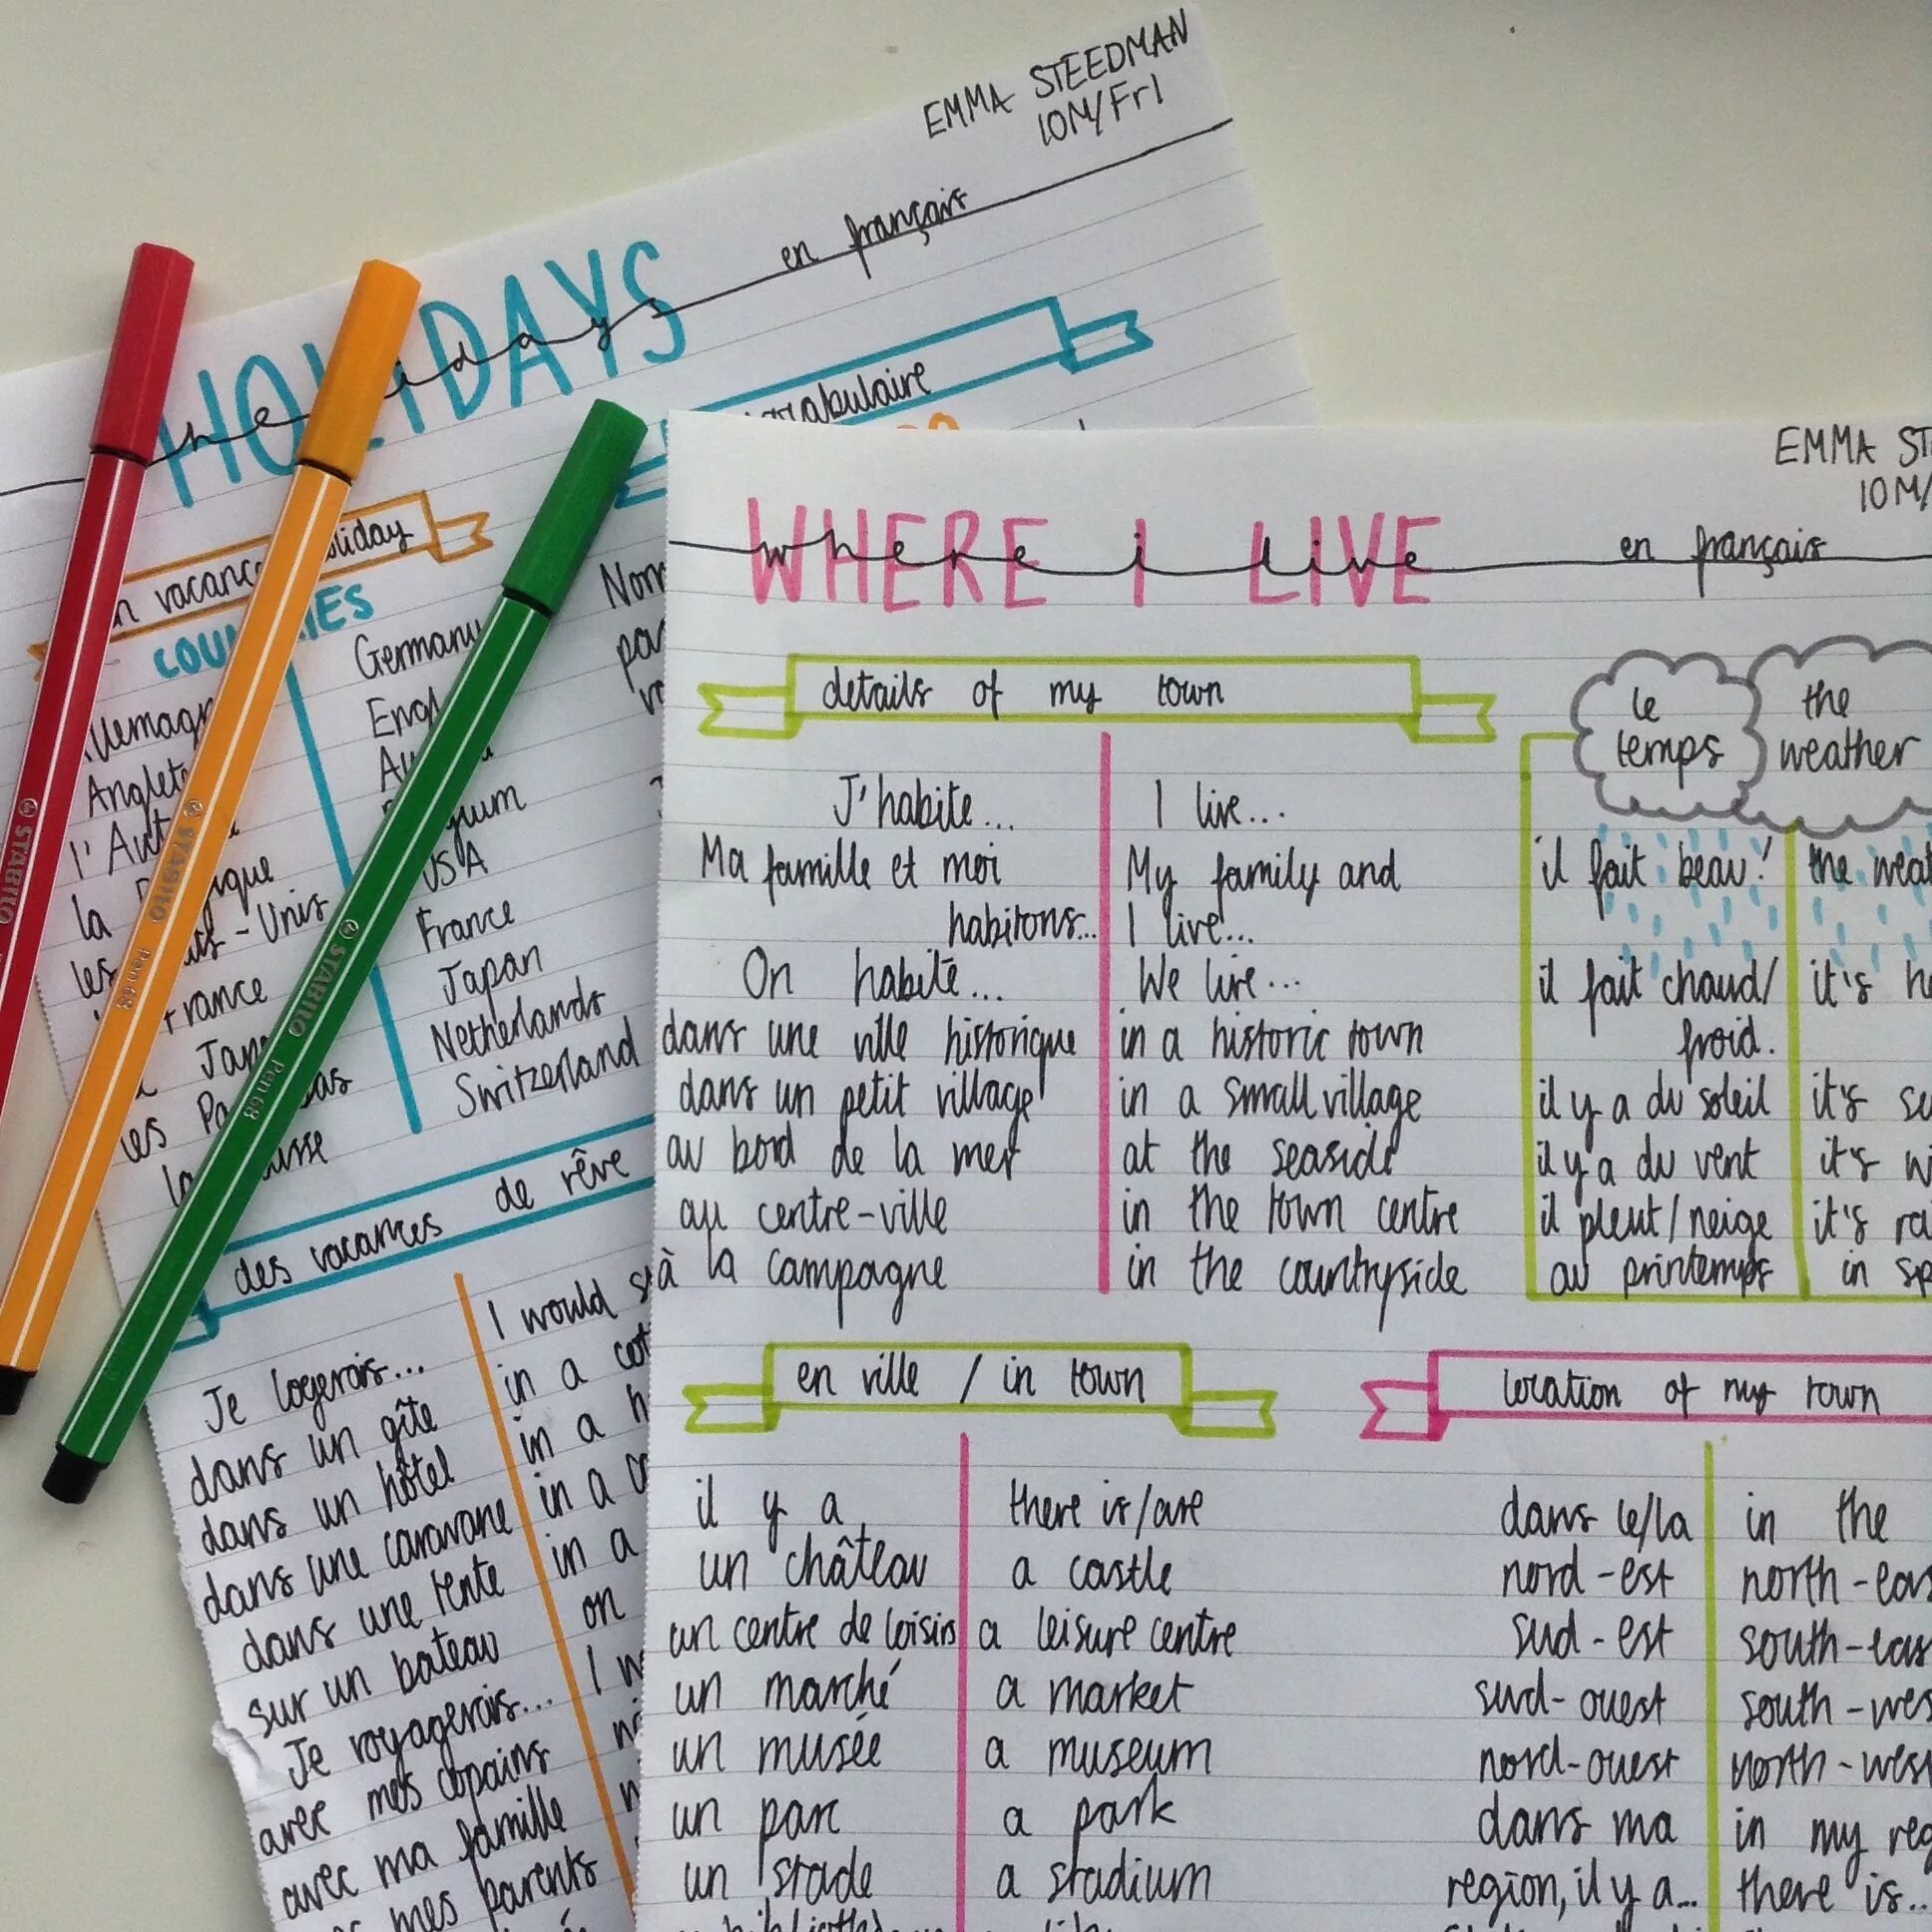 EMMA STEEDMAN
10M/Fr1
HOLIDAYS
en français
vocabulaire
vacance
COUNTRIES
Germany
USA
France
Japan
Netherlands
Switzerland
des vacances de rêve
Je logerais...
dans un gîte
dans un hôtel
dans une caravane
dans une tente
sur un bateau
Je voyagerais...
avec mes copains
avec ma famille
mes parents
I would
in a
in a
in a
in a
on
I
EMMA
10M/
WHERE I LIVE
where i live
en français
details of my town
J'habite... I live...
Ma famille et moi My family and
habitons... I live...
On habite... We live...
dans une ville historique in a historic town
dans un petit village in a small village
au bord de la mer at the seaside
au centre-ville in the town centre
à la campagne in the countryside
le the
temps weather
il fait beau! the
il fait chaud/ it's
froid.
il y a du soleil it's
il y a du vent it's
il pleut/neige it's
au printemps in
en ville / in town
il y a there is/are
un château a castle
un centre de loisirs a leisure centre
un marché a market
un musée a museum
un parc a park
un stade a stadium
location of my town
dans le/la in the
nord-est north-eas
sud-est south-eas
sud-ouest south-wes
nord-ouest north-wes
dans ma in my reg
region, il y a... there is...
STABILO
STABILO Pen 68
STABILO Pen 68